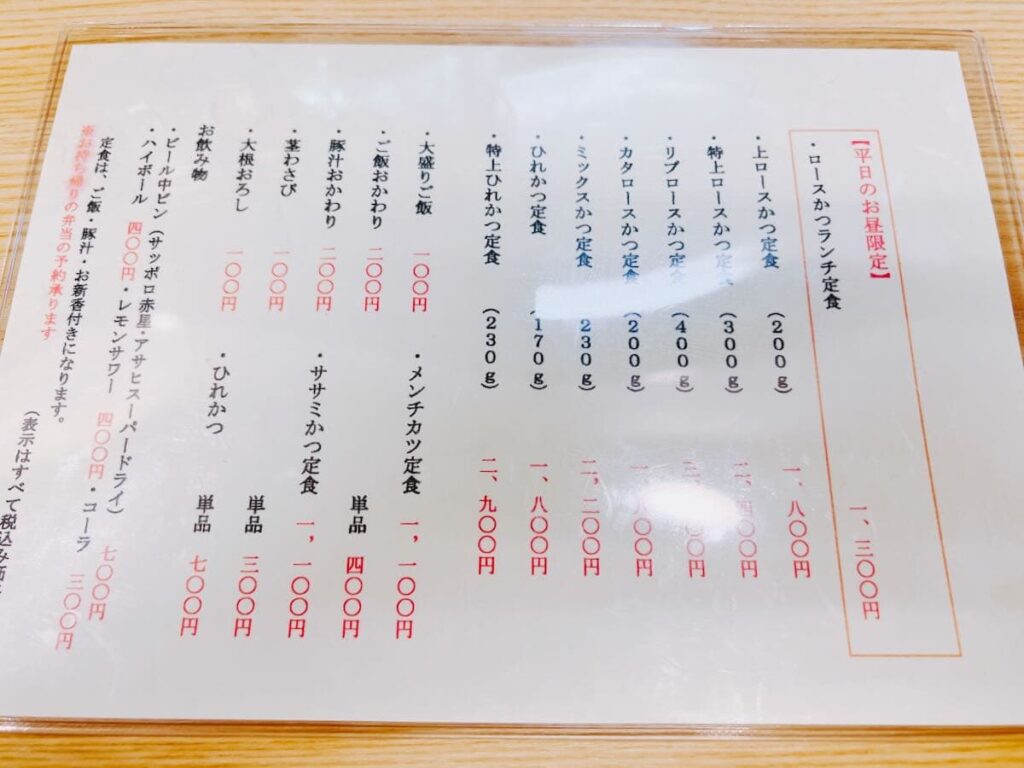 【平日のお昼限定】
・ロースかつランチ定食 一、三〇〇円
・上ロースかつ定食 (200g) 一、八〇〇円
・特上ロースかつ定食 (300g) 二、四〇〇円
・リブロースかつ定食 (400g) 〇〇円
・カタロースかつ定食 (200g) 一、八〇〇円
・ミックスかつ定食 (230g) 二、二〇〇円
・ひれかつ定食 (170g) 一、八〇〇円
・特上ひれかつ定食 (230g) 二、九〇〇円
・大盛りご飯 一〇〇円
・ご飯おかわり 二〇〇円
・豚汁おかわり 二〇〇円
・茎わさび 一〇〇円
・大根おろし 一〇〇円
・メンチカツ定食 一、一〇〇円
単品 四〇〇円
・ササミかつ定食 一、一〇〇円
単品 三〇〇円
・ひれかつ 単品 七〇〇円
お飲み物
・ビール中ビン(サッポロ赤星・アサヒスーパードライ) 七〇〇円
・ハイボール 四〇〇円・レモンサワー 四〇〇円・コーラ 三〇〇円
定食は、ご飯・豚汁・お新香付きになります。
※お持ち帰りの弁当の予約承ります
(表示はすべて税込み